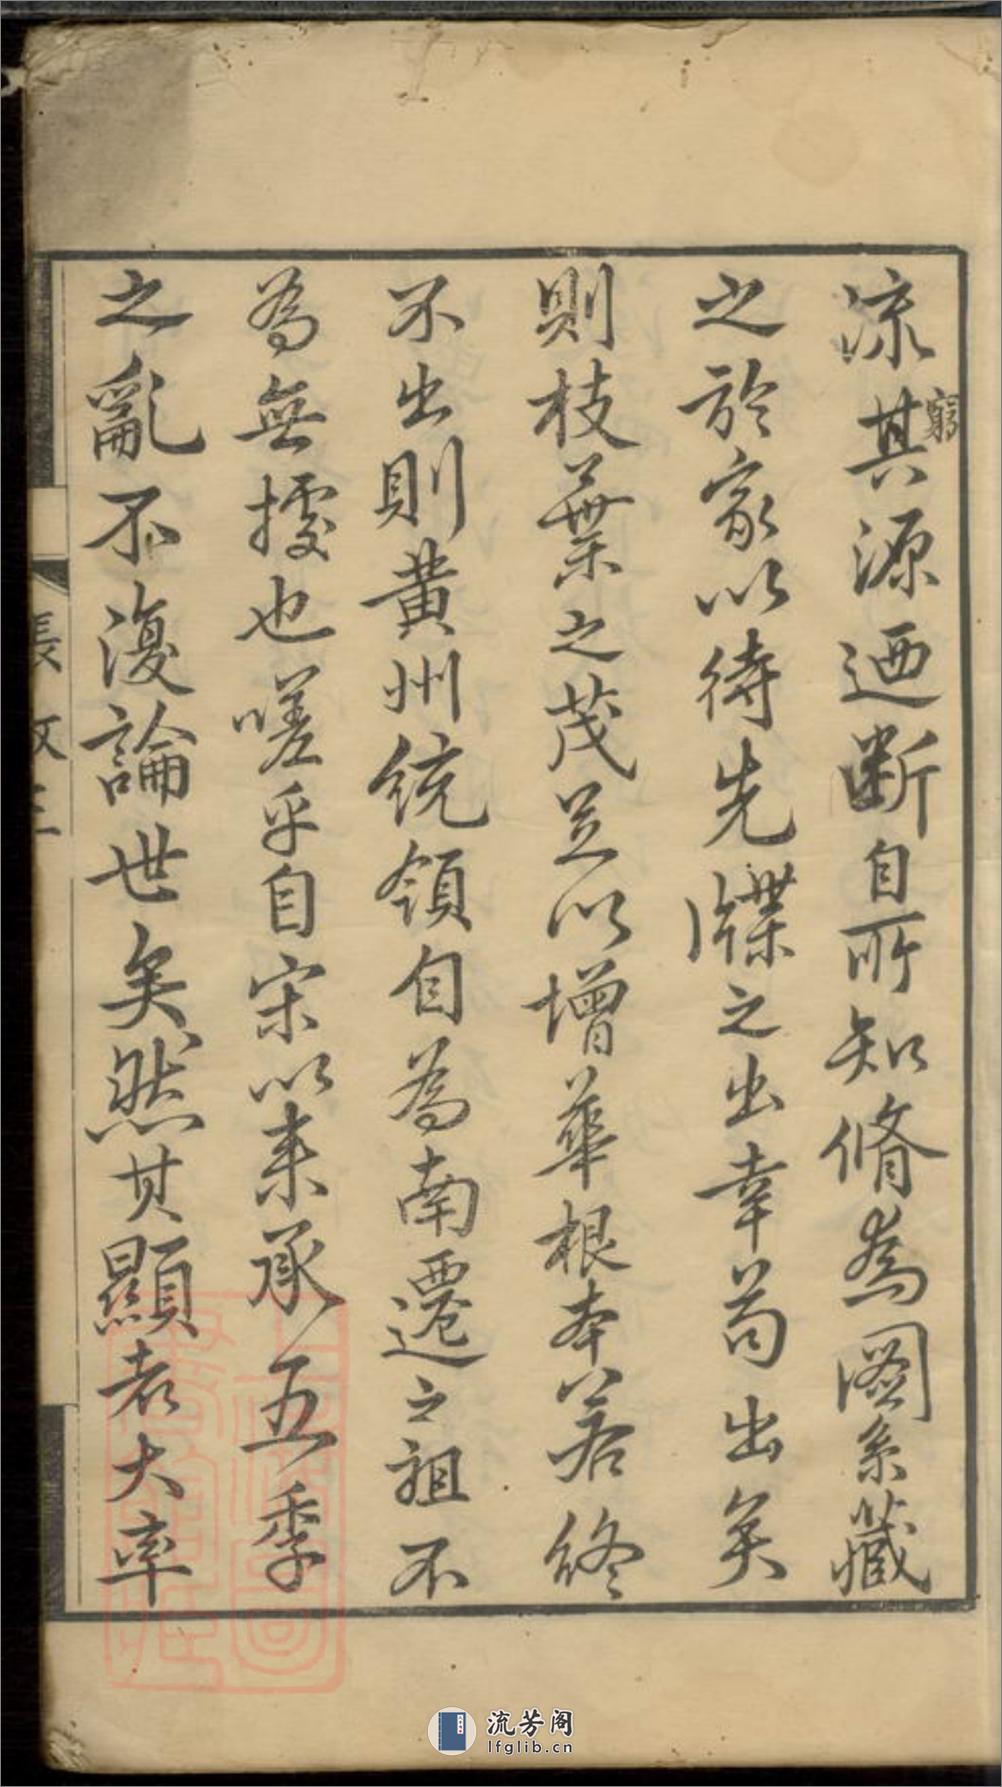 流其源迺断自所知脩為圖系藏
窮
之於家以待先牒之出幸苟出矣
則枝葉之茂足以增華根本若終
不出則黄州統領自為南遷之祖不
為無據也嗟乎自宋以来承五季
之亂不復論世矣然其顯者大率
長文三
流芳阁
lfglib.cn